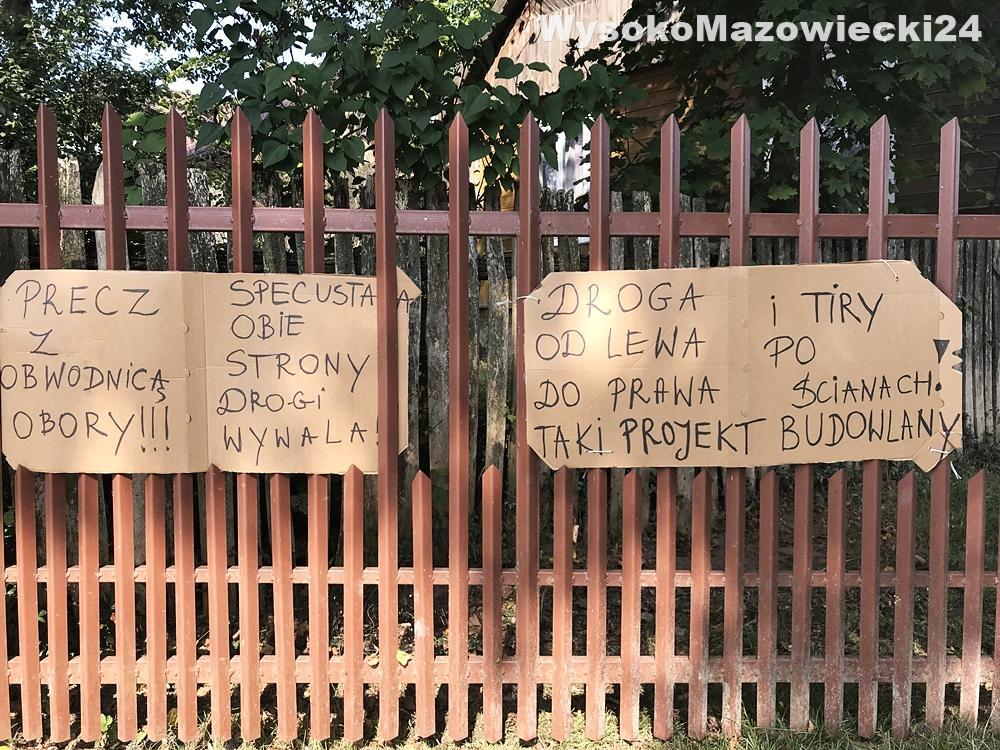 WysokoMazowiecki24
PRECZ
Z
OBWODNICĄ
OBORY!!!
SPECUSTAWA
OBIE
STRONY
DROGI
WYWALA!
DROGA
OD LEWA
DO PRAWA
i TIRY
PO
ŚCIANACH.
TAKI PROJEKT BUDOWLANY